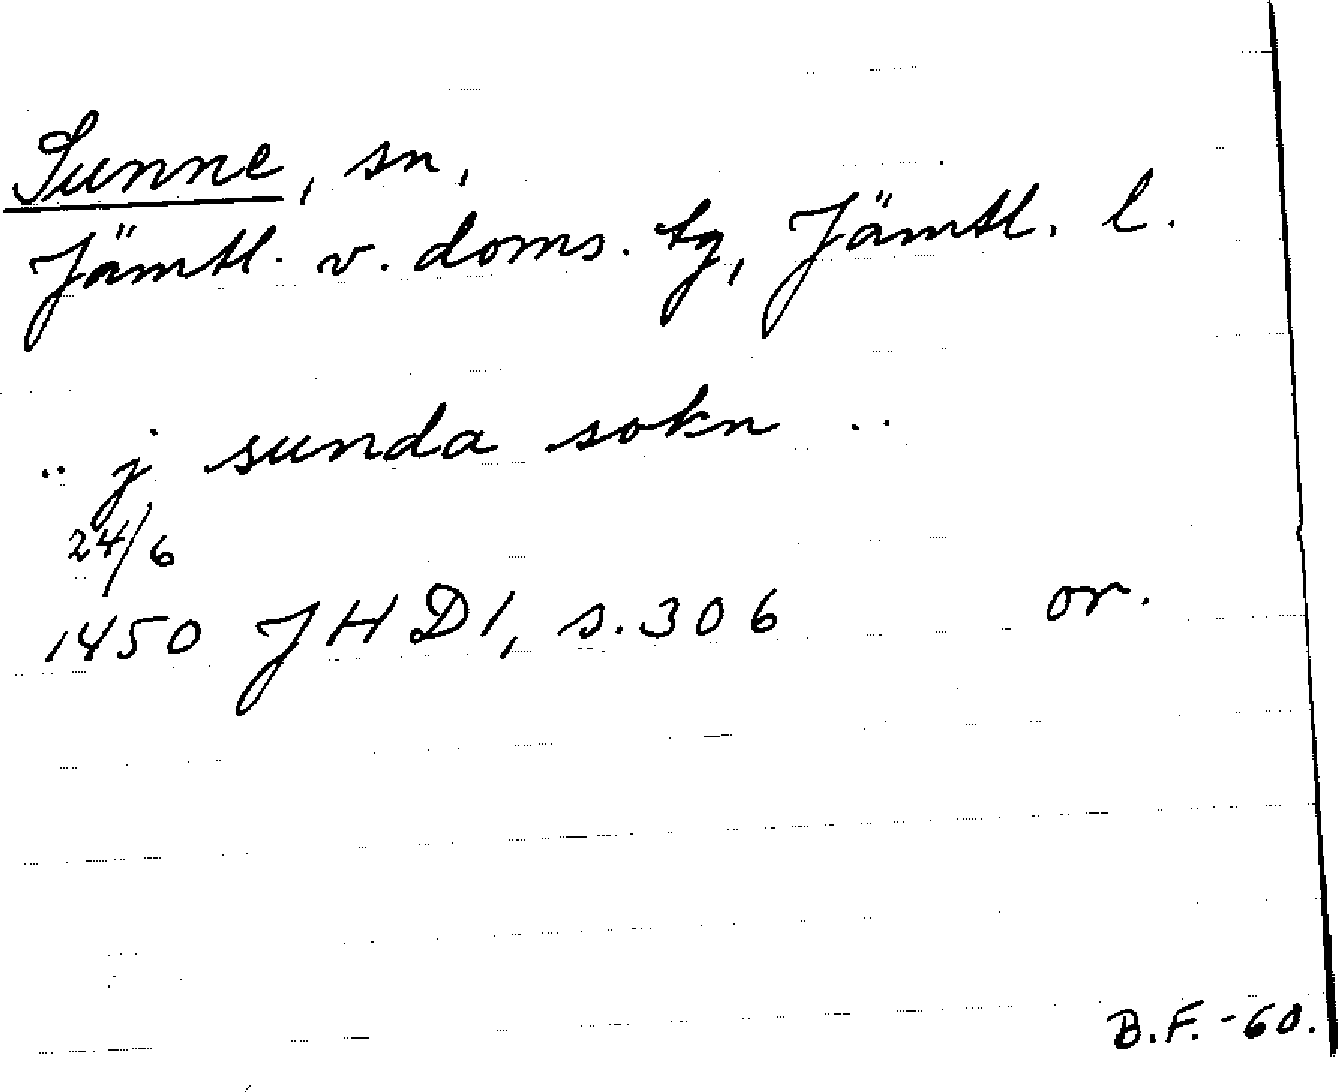 Sunne, sn,
Jämtl. v. doms. tg, Jämtl. l.
.. j sunda sokn ..
24/6
1450 JHD1, s. 306 or.
B.F. -60.